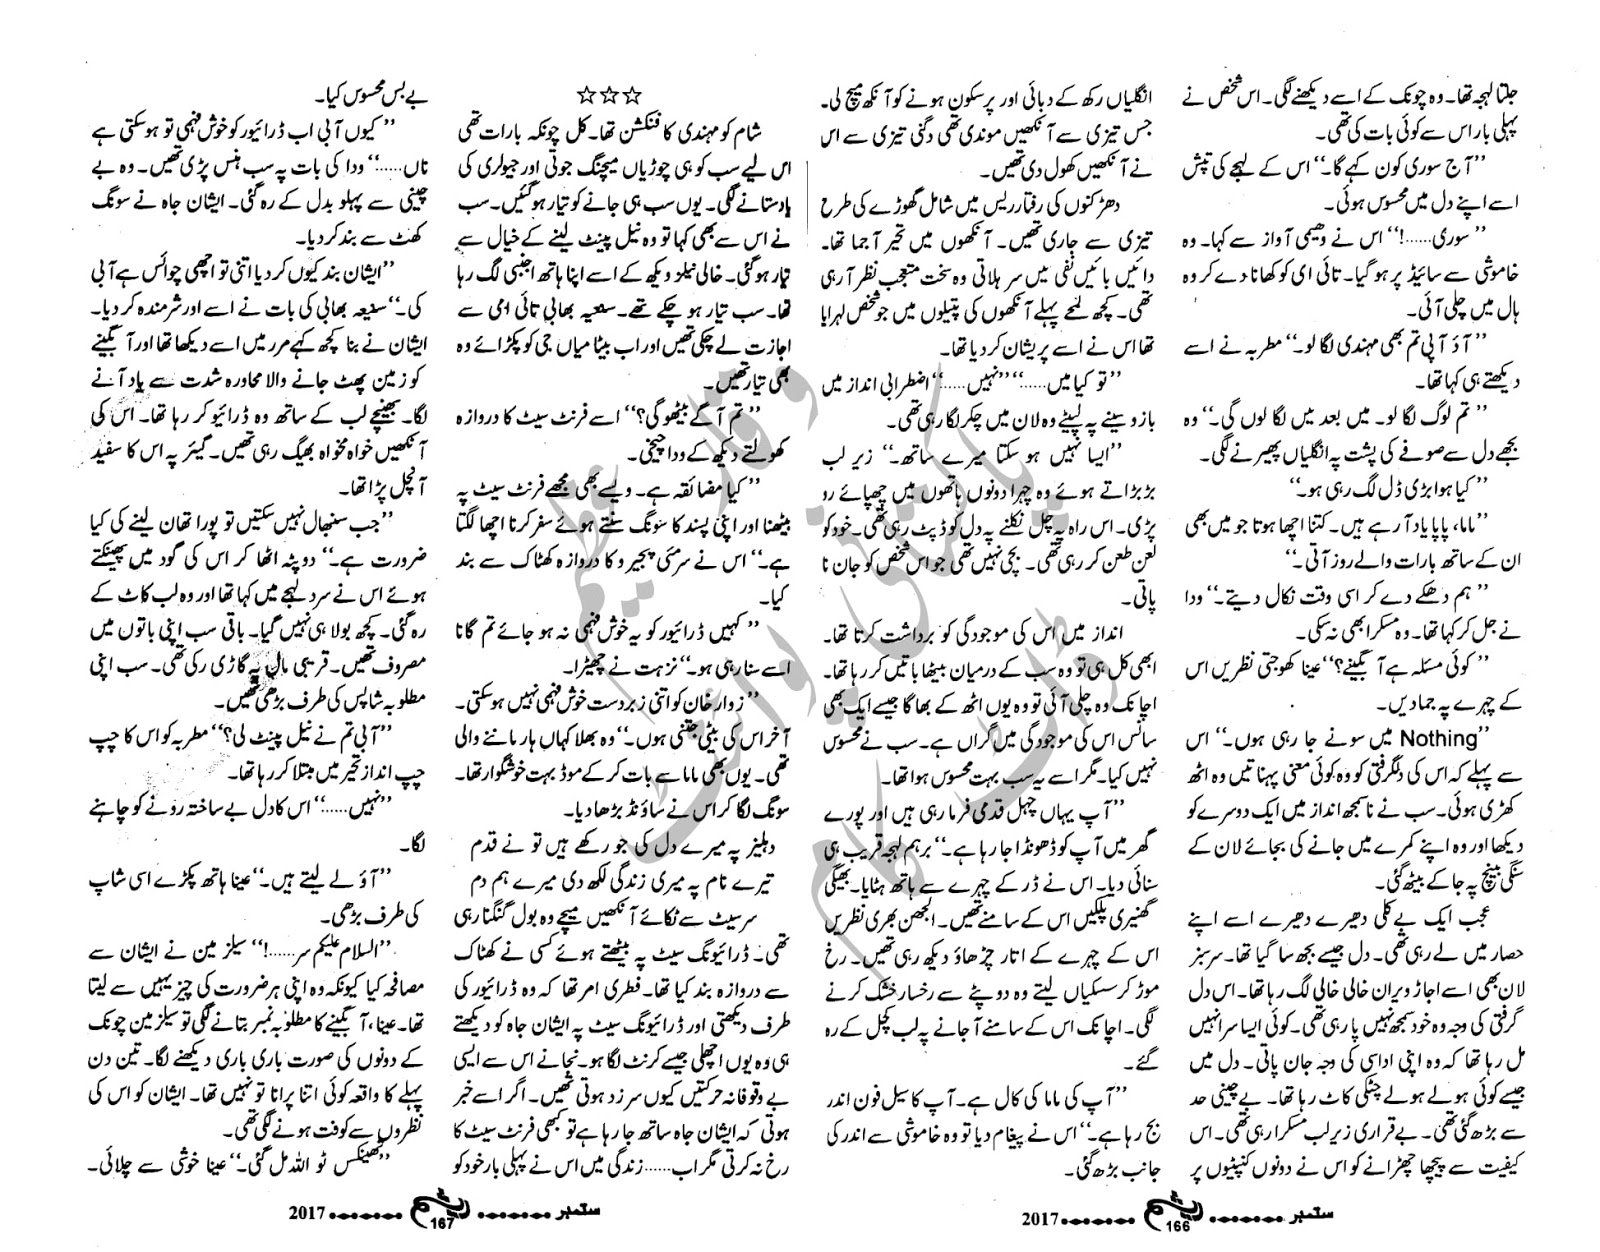 جلتا لہجہ تھا۔ وہ چونک کے اسے دیکھنے لگی۔ اس شخص نے
پہلی بار اس سے کوئی بات کی تھی۔
”آج سوری کون کہے گا۔“ اس کے لہجے کی تپش
اسے اپنے دل میں محسوس ہوئی۔
”سوری......!“ اس نے دھیمی آواز سے کہا۔ وہ
خاموشی سے سائیڈ پر ہو گیا۔ تائی ای کو کھانا دے کر وہ
ہال میں چلی آئی۔
”آؤ آبی تم بھی مہندی لگا لو۔“ مطربہ نے اسے
دیکھتے ہی کہا تھا۔
”تم لوگ لگا لو۔ میں بعد میں لگا لوں گی۔“ وہ
بجھے دل سے صوفے کی پشت پہ انگلیاں پھیرنے لگی۔
”کیا ہوا بڑی ڈل لگ رہی ہو۔“
”ماما، پاپا یاد آ رہے ہیں۔ کتنا اچھا ہوتا جو میں بھی
ان کے ساتھ بارات والے روز آتی۔“
”ہم دھکے دے کر اسی وقت نکال دیتے۔“ ودا
نے جل کر کہا تھا۔ وہ مسکرا بھی نہ سکی۔
”کوئی مسئلہ ہے آبگینے؟“ عینا کھوجتی نظریں اس
کے چہرے پہ جما دیں۔
”Nothing میں سونے جا رہی ہوں۔“ اس
سے پہلے کہ اس کی دلگرفتی کو وہ کوئی معنی پہناتیں وہ اٹھ
کھڑی ہوئی۔ سب نے ناسمجھ انداز میں ایک دوسرے کو
دیکھا اور وہ اپنے کمرے میں جانے کی بجائے لان کے
سنگی بینچ پہ جا کے بیٹھ گئی۔
عجب ایک بے کلی دھیرے دھیرے اسے اپنے
حصار میں لے رہی تھی۔ دل جیسے بجھ سا گیا تھا۔ سرسبز
لان بھی اسے اجاڑ ویران خالی خالی لگ رہا تھا۔ اس دل
گرفتی کی وجہ وہ خود سمجھ نہیں پا رہی تھی۔ کوئی ایسا سرا نہیں
مل رہا تھا کہ وہ اپنی اداسی کی وجہ جان پاتی۔ دل میں
جیسے کوئی ہولے ہولے چٹکی کاٹ رہا تھا۔ بے چینی حد
سے بڑھ گئی تھی۔ بے قراری زیر لب مسکرا رہی تھی۔ اس
کیفیت سے پیچھا چھڑانے کو اس نے دونوں کنپٹیوں پر
انگلیاں رکھ کے دبائی اور پرسکون ہونے کو آنکھ میچ لی۔
جس تیزی سے آنکھیں موندی تھی دگنی تیزی سے اس
نے آنکھیں کھول دی تھیں۔
دھڑکنوں کی رفتار ریس میں شامل گھوڑے کی طرح
تیزی سے جاری تھیں۔ آنکھوں میں تحیر آ جما تھا۔
دائیں بائیں نفی میں سر ہلاتی وہ سخت متعجب نظر آ رہی
تھی۔ کچھ لمحے پہلے آنکھوں کی پتلیوں میں جو شخص لہرایا
تھا اس نے اسے پریشان کر دیا تھا۔
”تو کیا میں.....“ ”نہیں.....“ اضطرابی انداز میں
بازو سینے پہ لپیٹے وہ لان میں چکر لگا رہی تھی۔
”ایسا نہیں ہو سکتا میرے ساتھ۔“ زیر لب
بڑبڑاتے ہوئے وہ چہرا دونوں ہاتھوں میں چھپائے رو
پڑی۔ اس راہ پہ چل نکلنے پہ دل کو ڈپٹ رہی تھی۔ خود کو
لعن طعن کر رہی تھی۔ بچی نہیں تھی جو اس شخص کو جان نا
پاتی۔
انداز میں اس کی موجودگی کو برداشت کرتا تھا۔
ابھی کل ہی تو وہ سب کے درمیان بیٹھا باتیں کر رہا تھا۔
اچانک وہ چلی آئی تو وہ یوں اٹھ کے بھاگا جیسے ایک بھی
سانس اس کی موجودگی میں گراں ہے۔ سب نے محسوس
نہیں کیا۔ مگر اسے یہ سب بہت محسوس ہوا تھا۔
”آپ یہاں چہل قدمی فرما رہی ہیں اور پورے
گھر میں آپ کو ڈھونڈا جا رہا ہے۔“ برہم لہجہ قریب ہی
سنائی دیا۔ اس نے ڈر کے چہرے سے ہاتھ ہٹایا۔ بھیگی
گھنیری پلکیں اس کے سامنے تھیں۔ الجھن بھری نظریں
اس کے چہرے کے اتار چڑھاؤ دیکھ رہی تھیں۔ رخ
موڑ کر سسکیاں لیتے وہ دوپٹے سے رخسار خشک کرنے
لگی۔ اچانک اس کے سامنے آ جانے پہ لب کچل کے رہ
گئے۔
”آپ کی ماما کی کال ہے۔ آپ کا سیل فون اندر
بج رہا ہے۔“ اس نے پیغام دیا تو وہ خاموشی سے اندر کی
جانب بڑھ گئی۔
ستمبر ........ 166 ........ 2017
☆☆☆
شام کو مہندی کا فنکشن تھا۔ کل چونکہ بارات تھی
اس لیے سب کو ہی چوڑیاں میچنگ جوتی اور جیولری کی
یاد ستانے لگی۔ یوں سب ہی جانے کو تیار ہو گئیں۔ سب
نے اس سے بھی کہا تو وہ نیل پینٹ لینے کے خیال سے
تیار ہو گئی۔ خالی نیلز دیکھ کے اسے اپنا ہاتھ اجنبی لگ رہا
تھا۔ سب تیار ہو چکے تھے۔ سنعیہ بھابی تائی امی سے
اجازت لے چکی تھیں اور اب بیٹا میاں جی کو پکڑائے وہ
بھی تیار تھیں۔
”تم آگے بیٹھو گی؟“ اسے فرنٹ سیٹ کا دروازہ
کھولتے دیکھ کے ودا چیخی۔
”کیا مضائقہ ہے۔ ویسے بھی مجھے فرنٹ سیٹ پہ
بیٹھنا اور اپنی پسند کا سونگ سنتے ہوئے سفر کرنا اچھا لگتا
ہے۔“ اس نے سرمئی پجیرو کا دروازہ کھٹاک سے بند
کیا۔
”کہیں ڈرائیور کو یہ خوش فہمی نہ ہو جائے تم گانا
اسے سنا رہی ہو۔“ نزہت نے چھیڑا۔
”زوار خان کو اتنی زبردست خوش فہمی نہیں ہو سکتی۔
آخر اس کی بیٹی جتنی ہوں۔“ وہ بھلا کہاں ہار ماننے والی
تھی۔ یوں بھی ماما سے بات کر کے موڈ بہت خوشگوار تھا۔
سونگ لگا کر اس نے ساؤنڈ بڑھا دیا۔
دہلیز پہ میرے دل کی جو رکھے ہیں تو نے قدم
تیرے نام پہ میری زندگی لکھ دی میرے ہم دم
سر سیٹ سے ٹکائے آنکھیں میچے وہ بول گنگنا رہی
تھی۔ ڈرائیونگ سیٹ پہ بیٹھتے ہوئے کسی نے کھٹاک
سے دروازہ بند کیا تھا۔ فطری امر تھا کہ وہ ڈرائیور کی
طرف دیکھتی اور ڈرائیونگ سیٹ پہ ایشان جاہ کو دیکھتے
ہی وہ یوں اچھلی جیسے کرنٹ لگا ہو۔ نجانے اس سے ایسی
بے وقوفانہ حرکتیں کیوں سرزد ہوتی تھیں۔ اگر اسے خبر
ہوتی کہ ایشان جاہ ساتھ جا رہا ہے تو کبھی فرنٹ سیٹ کا
رخ نہ کرتی مگر اب...... زندگی میں اس نے پہلی بار خود کو
بے بس محسوس کیا۔
”کیوں آبی اب ڈرائیور کو خوش فہمی تو ہو سکتی ہے
ناں......“ ودا کی بات پہ سب ہنس پڑی تھیں۔ وہ بے
چینی سے پہلو بدل کے رہ گئی۔ ایشان جاہ نے سونگ
کھٹ سے بند کر دیا۔
”ایشان بند کیوں کر دیا اتنی تو اچھی چوائس ہے آبی
کی۔“ سنیعہ بھابی کی بات نے اسے اور شرمندہ کر دیا۔
ایشان نے بنا کچھ کہے مرر میں اسے دیکھا تھا اور آبگینے
کو زمین پھٹ جانے والا محاورہ شدت سے یاد آنے
لگا۔ بھینچے لب کے ساتھ وہ ڈرائیو کر رہا تھا۔ اس کی
آنکھیں خواہ مخواہ بھیگ رہی تھیں۔ گیئر پہ اس کا سفید
آنچل پڑا تھا۔
”جب سنبھال نہیں سکتیں تو پورا تھان لینے کی کیا
ضرورت ہے۔“ دوپٹہ اٹھا کر اس کی گود میں پھینکتے
ہوئے اس نے سرد لہجے میں کہا تھا اور وہ لب کاٹ کے
رہ گئی۔ کچھ بولا ہی نہیں گیا۔ باقی سب اپنی باتوں میں
مصروف تھیں۔ قریبی مال پہ گاڑی رکی تھی۔ سب اپنی
مطلوبہ شاپس کی طرف بڑھی تھیں۔
”آبی تم نے نیل پینٹ لی؟“ مطربہ کو اس کا چپ
چپ انداز تحیر میں مبتلا کر رہا تھا۔
”نہیں.....“ اس کا دل بے ساختہ رونے کو چاہنے
لگا۔
”آؤ لے لیتے ہیں۔“ عینا ہاتھ پکڑے اسی شاپ
کی طرف بڑھی۔
”السلام علیکم سر......!“ سیلز مین نے ایشان سے
مصافحہ کیا کیونکہ وہ اپنی ہر ضرورت کی چیز یہیں سے لیتا
تھا۔ عینا، آبگینے کا مطلوبہ نمبر بتانے لگی تو سیلز مین چونک
کے دونوں کی صورت باری باری دیکھنے لگا۔ تین دن
پہلے کا واقعہ کوئی اتنا پرانا تو نہیں تھا۔ ایشان کو اس کی
نظروں سے کوفت ہونے لگی تھی۔
”تھینکس ٹو اللہ مل گئی۔“ عینا خوشی سے چلائی۔
ستمبر ........ 167 ........ 2017
پاکستانی پوائنٹ
ڈاٹ کام
وقار عظیم